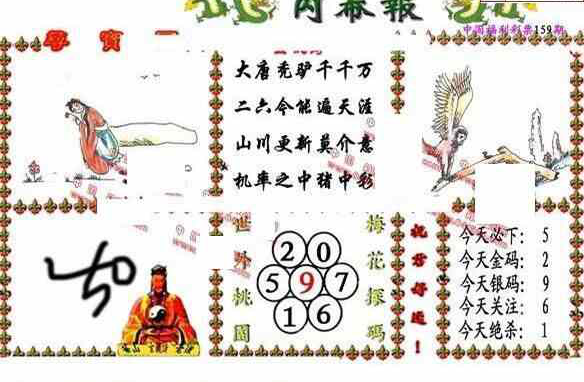 內幕報
中国福利彩票159期
寻宝图
大唐秃驴千千万
二六今能遍天涯
山川更新莫介意
机率之中猪中彩
世外桃園
2 0
5 9 7
1 6
梅花探碼
祝君好运！
今天必下：5
今天金码：2
今天银码：9
今天关注：6
今天绝杀：1